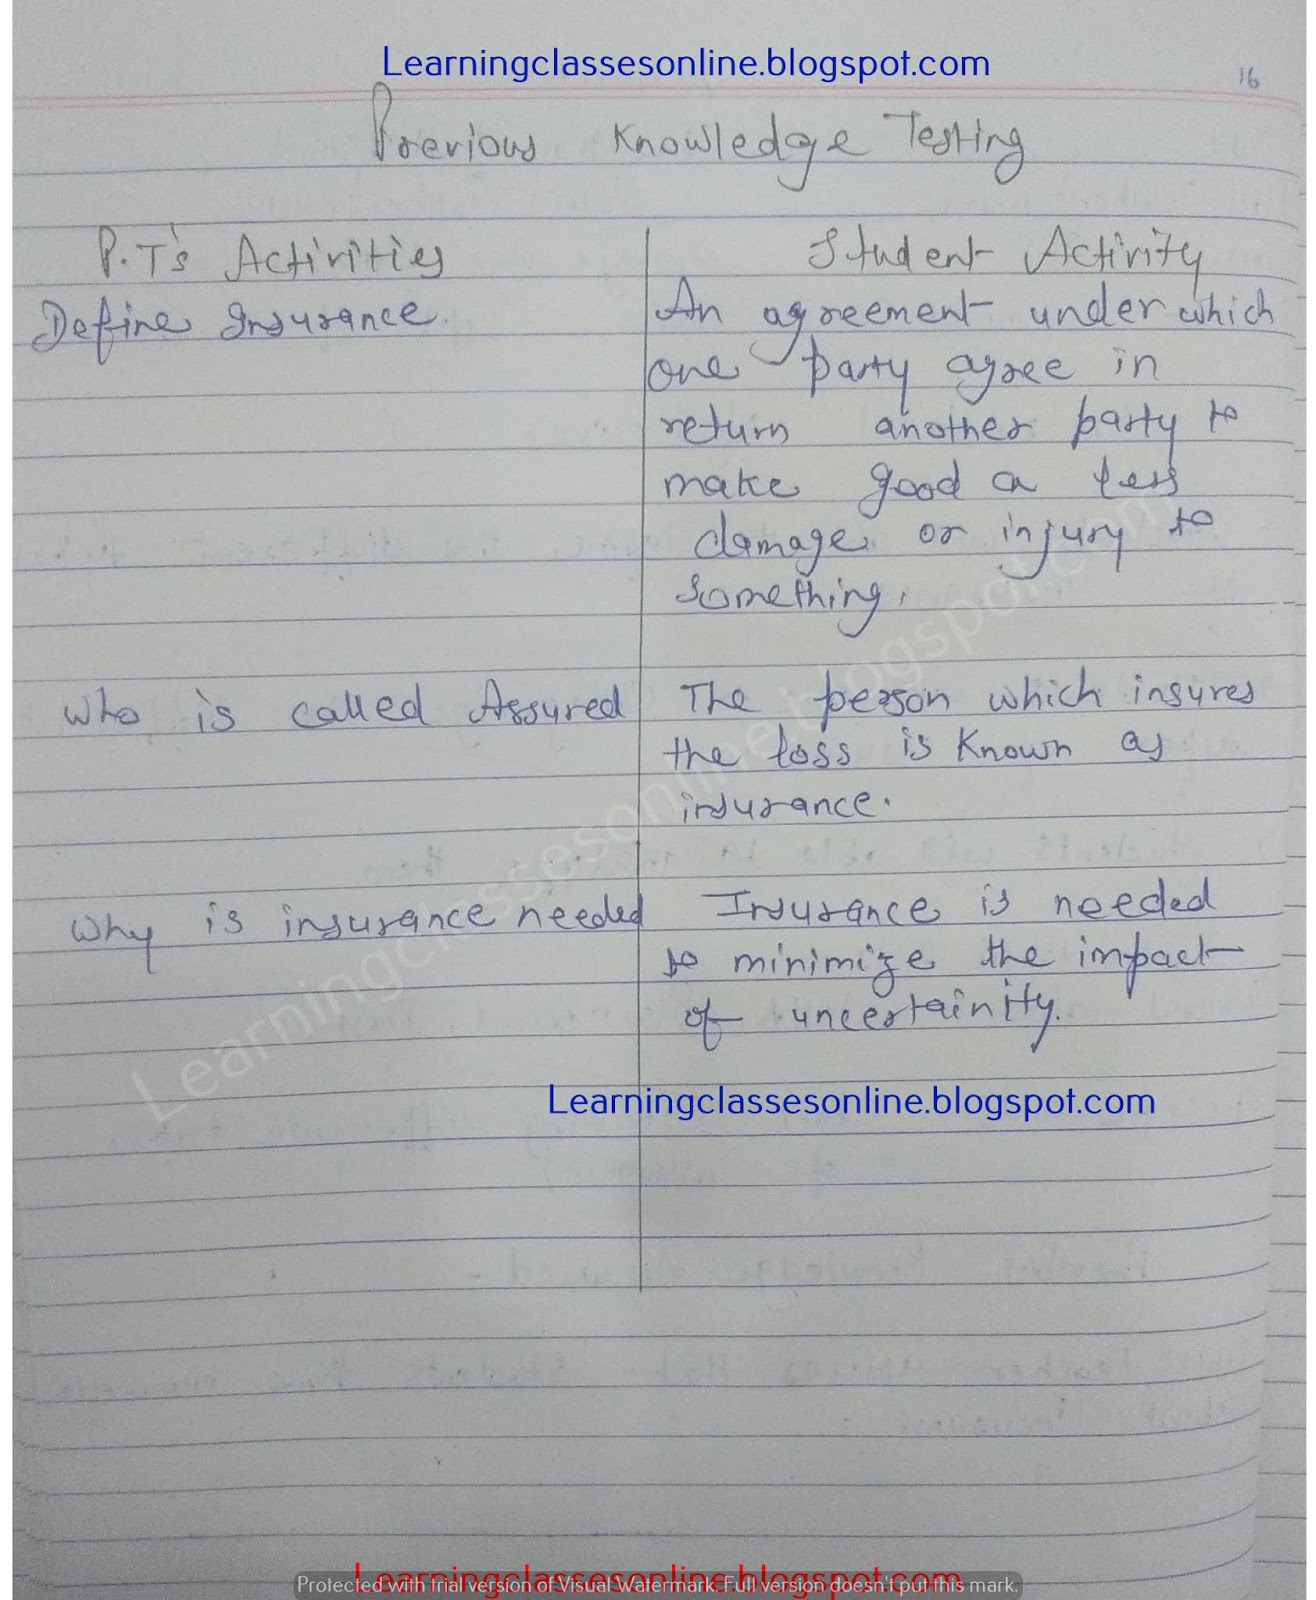 Learningclassesonline.blogspot.com
16
Previous Knowledge Testing
P.T's Activities
Student Activity
Define Insurance.
An agreement under which
one party agree in
return another party to
make good a less
damage or injury to
something.
Who is called Assured
The person which insures
the loss is known as
insurance.
Why is insurance needed
Insurance is needed
to minimize the impact
of uncertainity.
Learningclassesonline.blogspot.com
Learningclassesonline.blogspot.com
Learningclassesonline.blogspot.com
Protected with trial version of Visual Watermark. Full version doesn't put this mark.